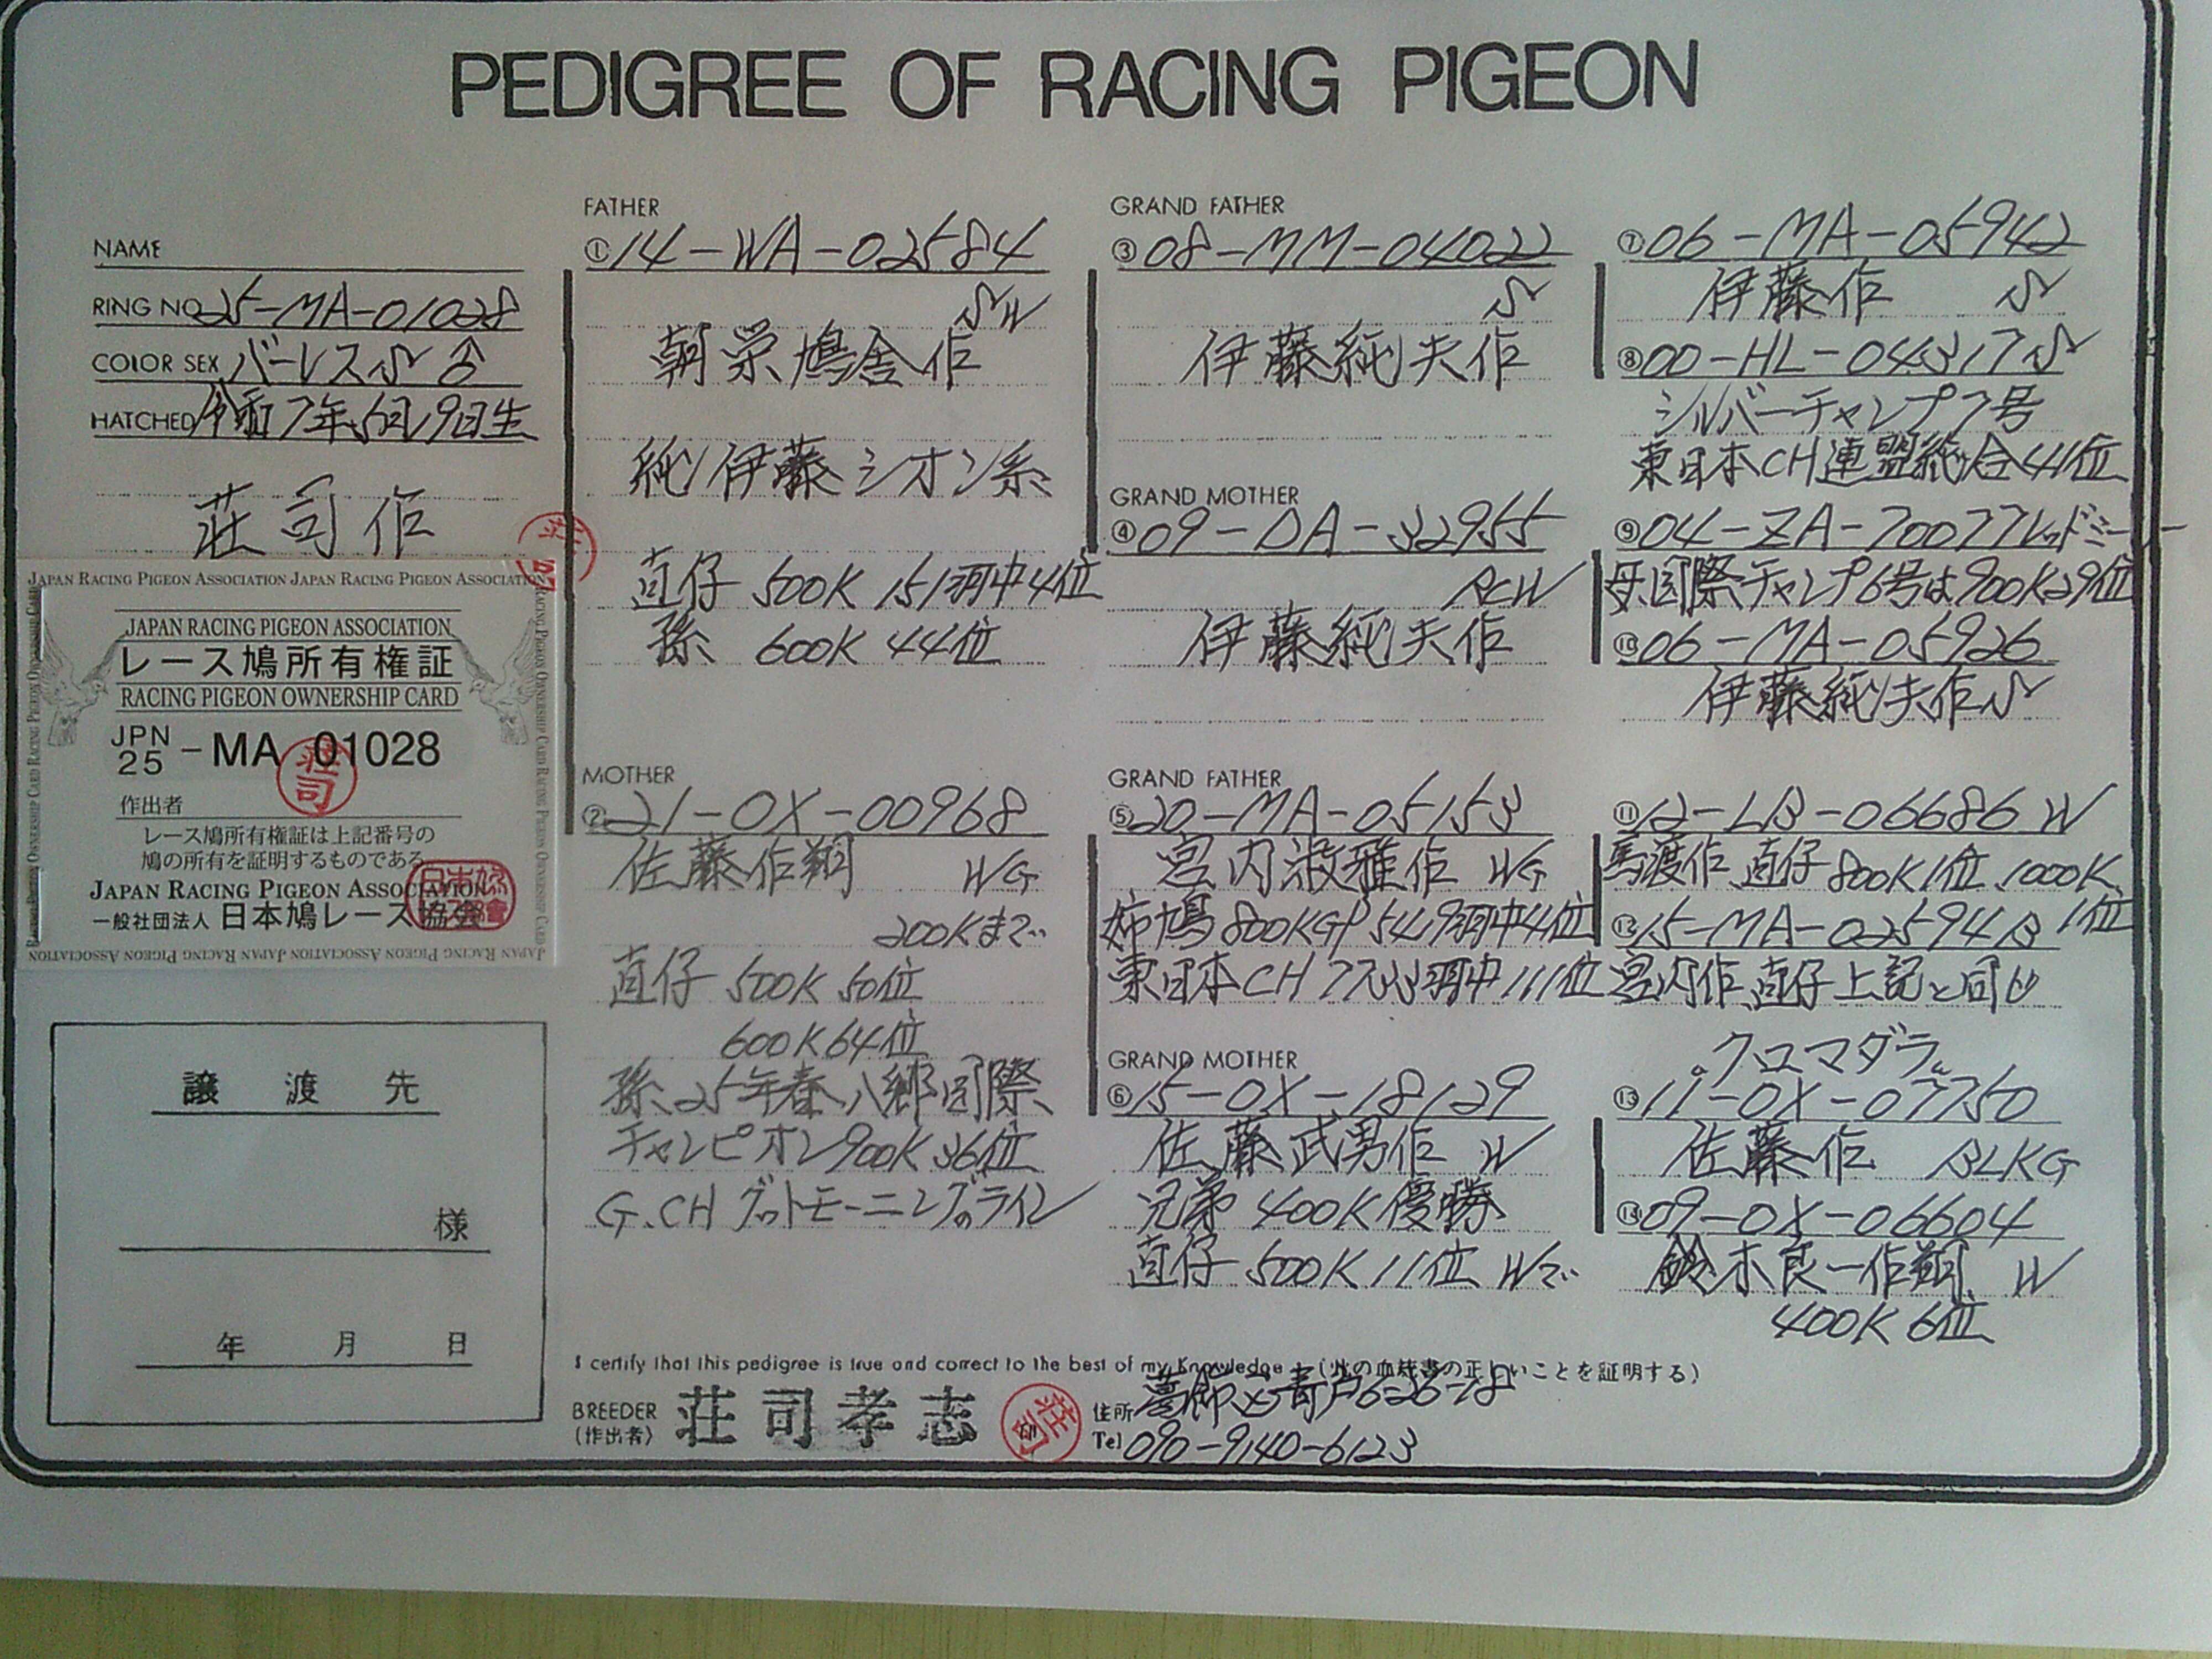 PEDIGREE OF RACING PIGEON
NAME
RING NO 25-MA-01028
COLOR SEX バーレスS ♂
HATCHED 令和7年5月9日生
荘司作
JAPAN RACING PIGEON ASSOCIATION JAPAN RACING PIGEON ASSOCIATION
JAPAN RACING PIGEON ASSOCIATION
レース鳩所有権証
RACING PIGEON OWNERSHIP CARD
JPN
25 - MA 01028
荘司
作出者
レース鳩所有権証は上記番号の
鳩の所有を証明するものである
JAPAN RACING PIGEON ASSOCIATION
一般社団法人 日本鳩レース協会
譲渡先
様
年 月 日
FATHER
①14-WA-02584
SW
朝栄鳩舎作
純伊藤シオン系
直仔 500K 151羽中4位
孫 600K 44位
MOTHER
②21-OX-00968
佐藤作翔 WG
200Kまで
直仔 500K 50位
600K64位
孫、25年春八郷国際
チャンピオン900K 36位
G.CH グットモーニングのライン
GRAND FATHER
③08-MM-04022
S
伊藤純夫作
GRAND MOTHER
④09-DA-32955
RCW
伊藤純夫作
GRAND FATHER
⑤20-MA-05153
宮内淑雅作 WG
姉鳩800KGP 549羽中4位
東日本CH 7733羽中111位
GRAND MOTHER
⑥15-OX-18129
佐藤武男作 W
兄弟 400K優勝
直仔 500K 11位 Wで
⑦06-MA-05942
伊藤作 S
⑧00-HL-04317 S
シルバーチャンプ7号
東日本CH連盟総合41位
⑨04-ZA-70077レッドミーリー
母国際チャンプ6号は900K29位
⑩06-MA-05926
伊藤純夫作S
⑪12-LB-06686 W
馬渡作 直仔 800K1位、1000K
1位
⑫15-MA-02594 B
宮内作 直仔上記と同じ
クロマダラ
⑬11-OX-07750
佐藤作 BLKG
⑭09-OX-06604
鈴木良一作翔 W
400K 6位
I certify that this pedigree is true and correct to the best of my Knowledge (此の血統書の正しいことを証明する)
BREEDER
(作出者) 荘司孝志
住所 626-18
Tel 090-9140-6123